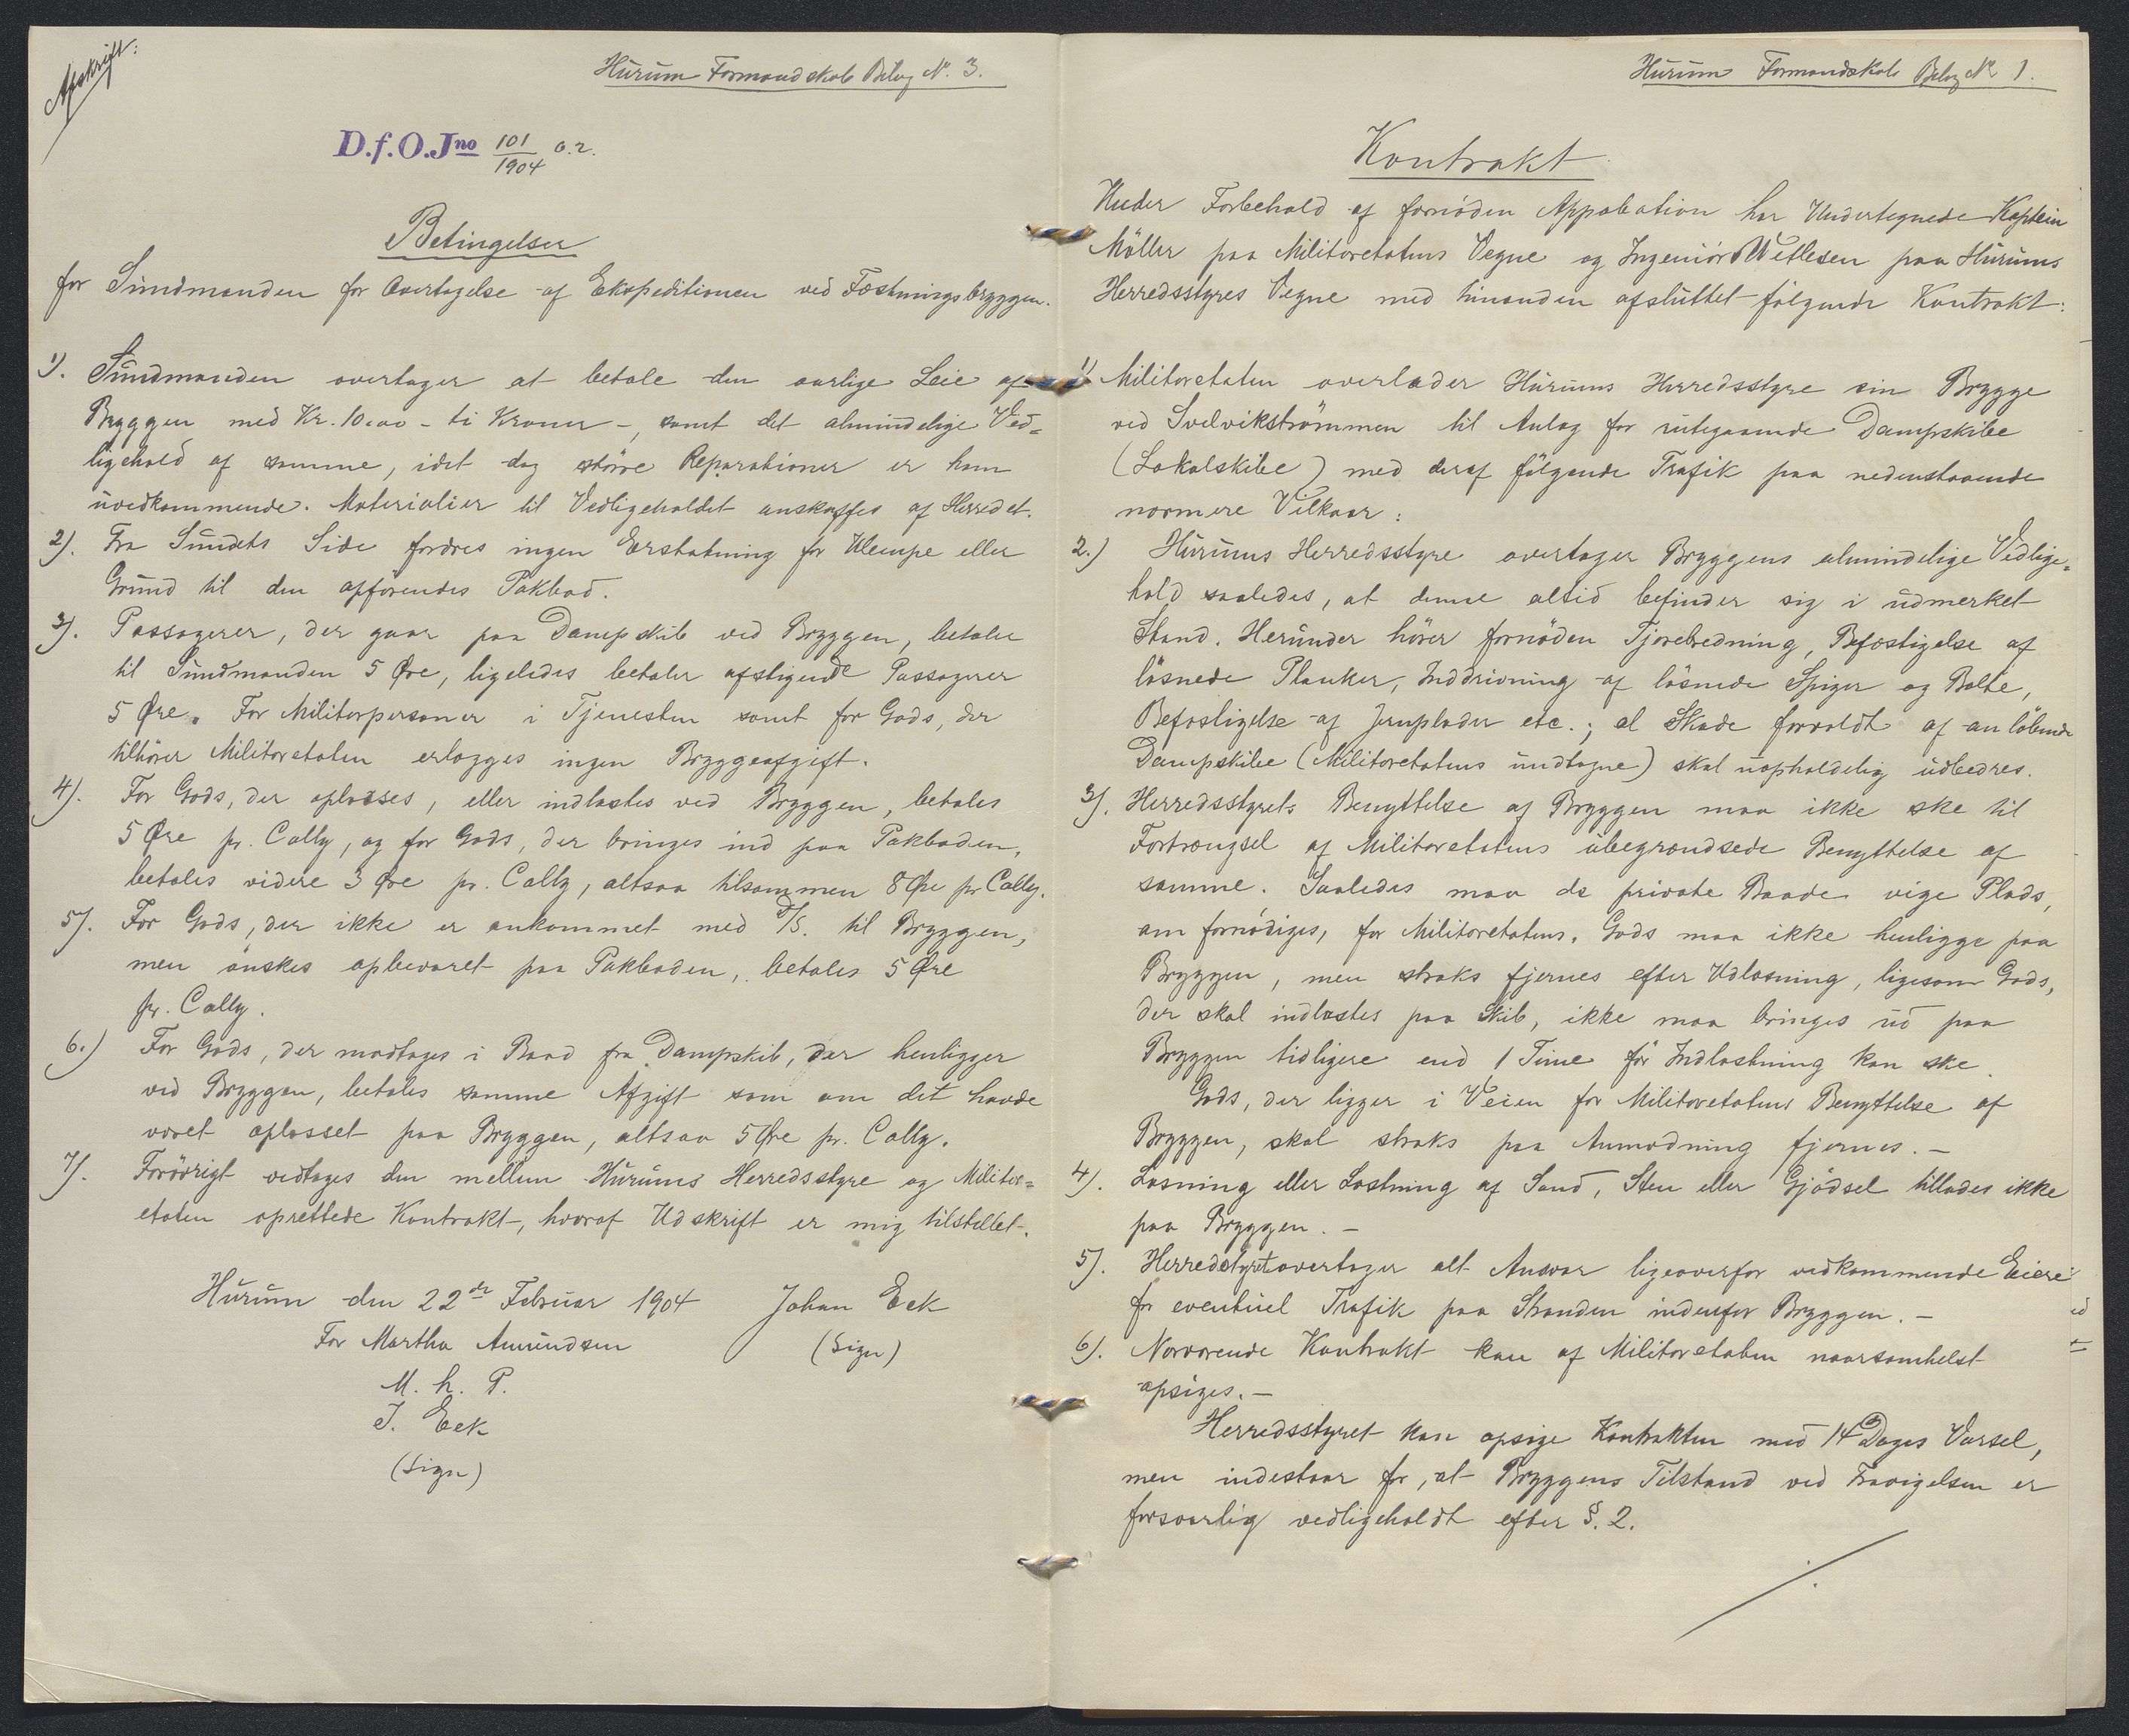 Afskrift:
Hurum Formandskab Bilag No. 3.
D.f.O.Jno 101/1904 o.r.
Betingelser
for Sundmanden for Overtagelse af Ekspeditionen ved Fæstningsbryggen.
1). Sundmanden overtager at betale den aarlige Leie af
Bryggen med Kr. 10.00 - ti Kroner -, samt det almindelige Ved=
ligehold af samme, idet dog större Reparationer er ham
uvedkommende. Materialier til Vedligeholdet anskaffes af Herredet.
2). Fra Sundets Side fordres ingen Erstatning for Ulempe eller
Grund til den opförendes Pakbod.
3). Passagerer, der gaar paa Dampskib ved Bryggen, betaler
til Sundmanden 5 Øre, ligeledes betaler afstigende Passagerer
5 Øre. For Militærpersoner i Tjenesten samt for Gods, der
tilhörer Militæretaten erlægges ingen Bryggeafgift.
4). For Gods, der oplosses, eller indlastes ved Bryggen, betales
5 Øre pr. Colly, og for Gods, der bringes ind paa Pakboden,
betales videre 3 Øre pr. Colly, altsaa tilsammen 8 Øre pr Colly.
5). For Gods, der ikke er ankommet med D/S. til Bryggen,
men önskes opbevaret paa Pakboden, betales 5 Øre
pr. Colly.
6.) For Gods, der modtages i Baad fra Dampskib, der henligger
ved Bryggen, betales samme Afgift som om det havde
været oplosset paa Bryggen, altsaa 5 Øre pr. Colly.
7). Forövrigt vedtages den mellem Hurums Herredsstyre og Militær=
etaten oprettede Kontrakt, hvoraf Udskrift er mig tilstillet.
Hurum den 22de Februar 1904 Johan Eek
For Martha Amundsen (Sign)
M. h. P.
J. Eek
(Sign)
Hurum Formandskab Bilag No 1.
Kontrakt
Under Forbehold af fornöden Approbation har Undertegnede Kaptein
Möller paa Militæretatens Vegne og Ingeniör Wetlesen paa Hurums
Herredsstyres Vegne med hinanden afsluttet fölgende Kontrakt:
1) Militæretaten overlader Hurums Herredsstyre sin Brygge
ved Svelvikströmmen til Anlag for rutegaaende Dampskibe
(Lokalskibe) med deraf fölgende Trafik paa nedenstaaende
nærmere Vilkaar:
2.) Hurums Herredsstyre overtager Bryggens almindelige Vedlige=
hold saaledes, at denne altid befinder sig i udmerket
Stand. Herunder hörer fornöden Tjærebredning, Befæstigelse af
lösnede Planker, Inddrivning af lösnede Spiger og Bolte,
Befæstigelse af Jernplader etc.; al Skade forvoldt af anlöbende
Dampskibe (Militæretatens undtagne) skal uopholdelig udbedres.
3). Herredsstyrets Benyttelse af Bryggen maa ikke ske til
Fortrængsel af Militæretatens ubegrændsede Benyttelse af
samme. Saaledes maa de private Baade vige Plads,
om fornödiges, for Militæretatens. Gods maa ikke henligge paa
Bryggen, men straks fjernes efter Udlosning, ligesom Gods,
der skal indlastes paa Skib, ikke maa bringes ud paa
Bryggen tidligere end 1 Time för Indlastning kan ske.
Gods, der ligger i Veien for Militæretatens Benyttelse af
Bryggen, skal straks paa Anmodning fjernes. -
4). Losning eller Lastning af Sand, Sten eller Gjödsel tillades ikke
paa Bryggen. -
5). Herredsstyret overtager alt Ansvar ligeoverfor vedkommende Eiere
for eventuel Trafik paa Stranden indenfor Bryggen. -
6). Nærværende Kontrakt kan af Militæretaten naarsomhelst
opsiges. -
Herredsstyret kan opsige Kontrakten med 14 Dages Varsel,
men indestaar for, at Bryggens Tilstand ved Fravigelsen er
forsvarlig vedligeholdt efter §. 2.